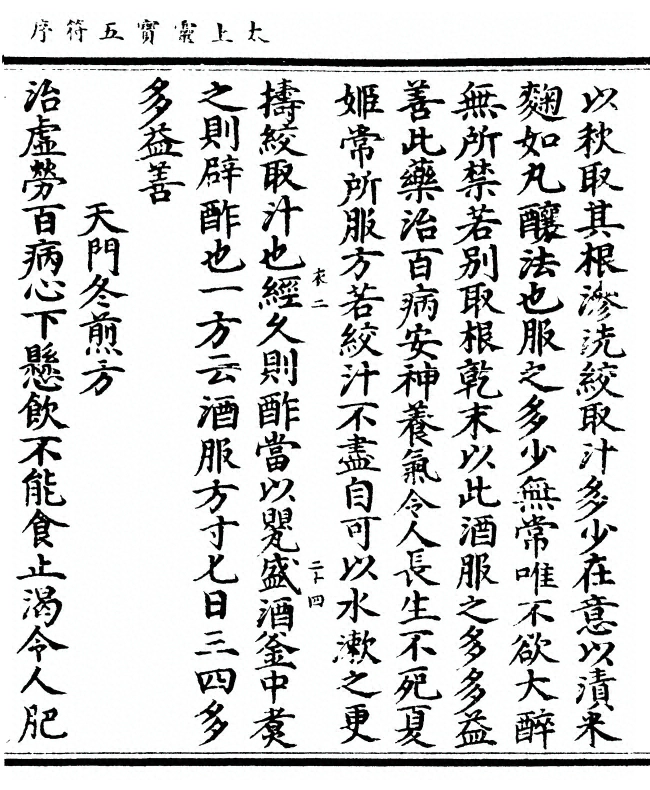 太上靈寳五符序
以秋取其根滲洗絞取汁多少在意以漬米
麴如丸釀法也服之多少無常唯不欲大醉
無所禁若別取根乾末以此酒服之多多益
善此藥治百病安神養氣令人長生不死夏
姬常所服方若絞汁不盡自可以水漱之更
衣二
二十四
擣絞取汁也經久則酢當以甖盛酒釜中煑
之則辟酢也一方云酒服方寸七日三四多
多益善
天門冬煎方
治虛勞百病心下懸飲不能食止渴令人肥